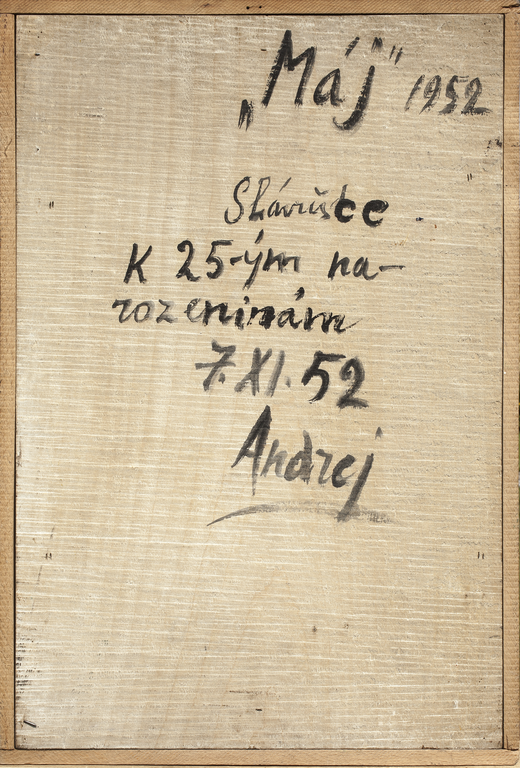 „Máj“ 1952
Slávušce.
K 25-ým na-
rozeninám
7. XI. 52
Andrej